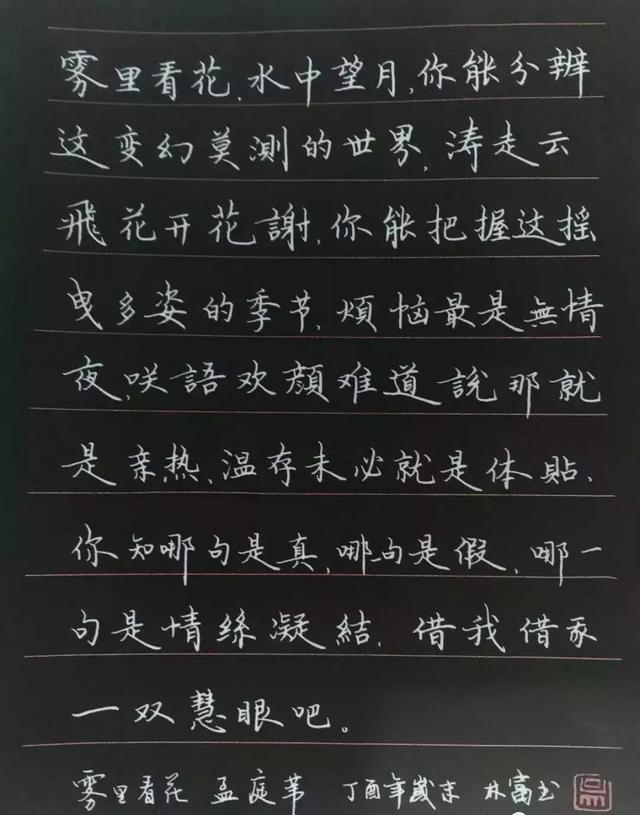 雾里看花,水中望月,你能分辨
这变幻莫测的世界,涛走云
飛花开花謝,你能把握这摇
曳多姿的季节,煩恼最是無情
夜,咲語欢顔难道說那就
是亲热,温存未必就是体貼、
你知哪句是真,哪句是假,哪一
句是情絲凝結,借我借我
一双慧眼吧。
雾里看花 孟庭苇 丁酉年歲末 林富书